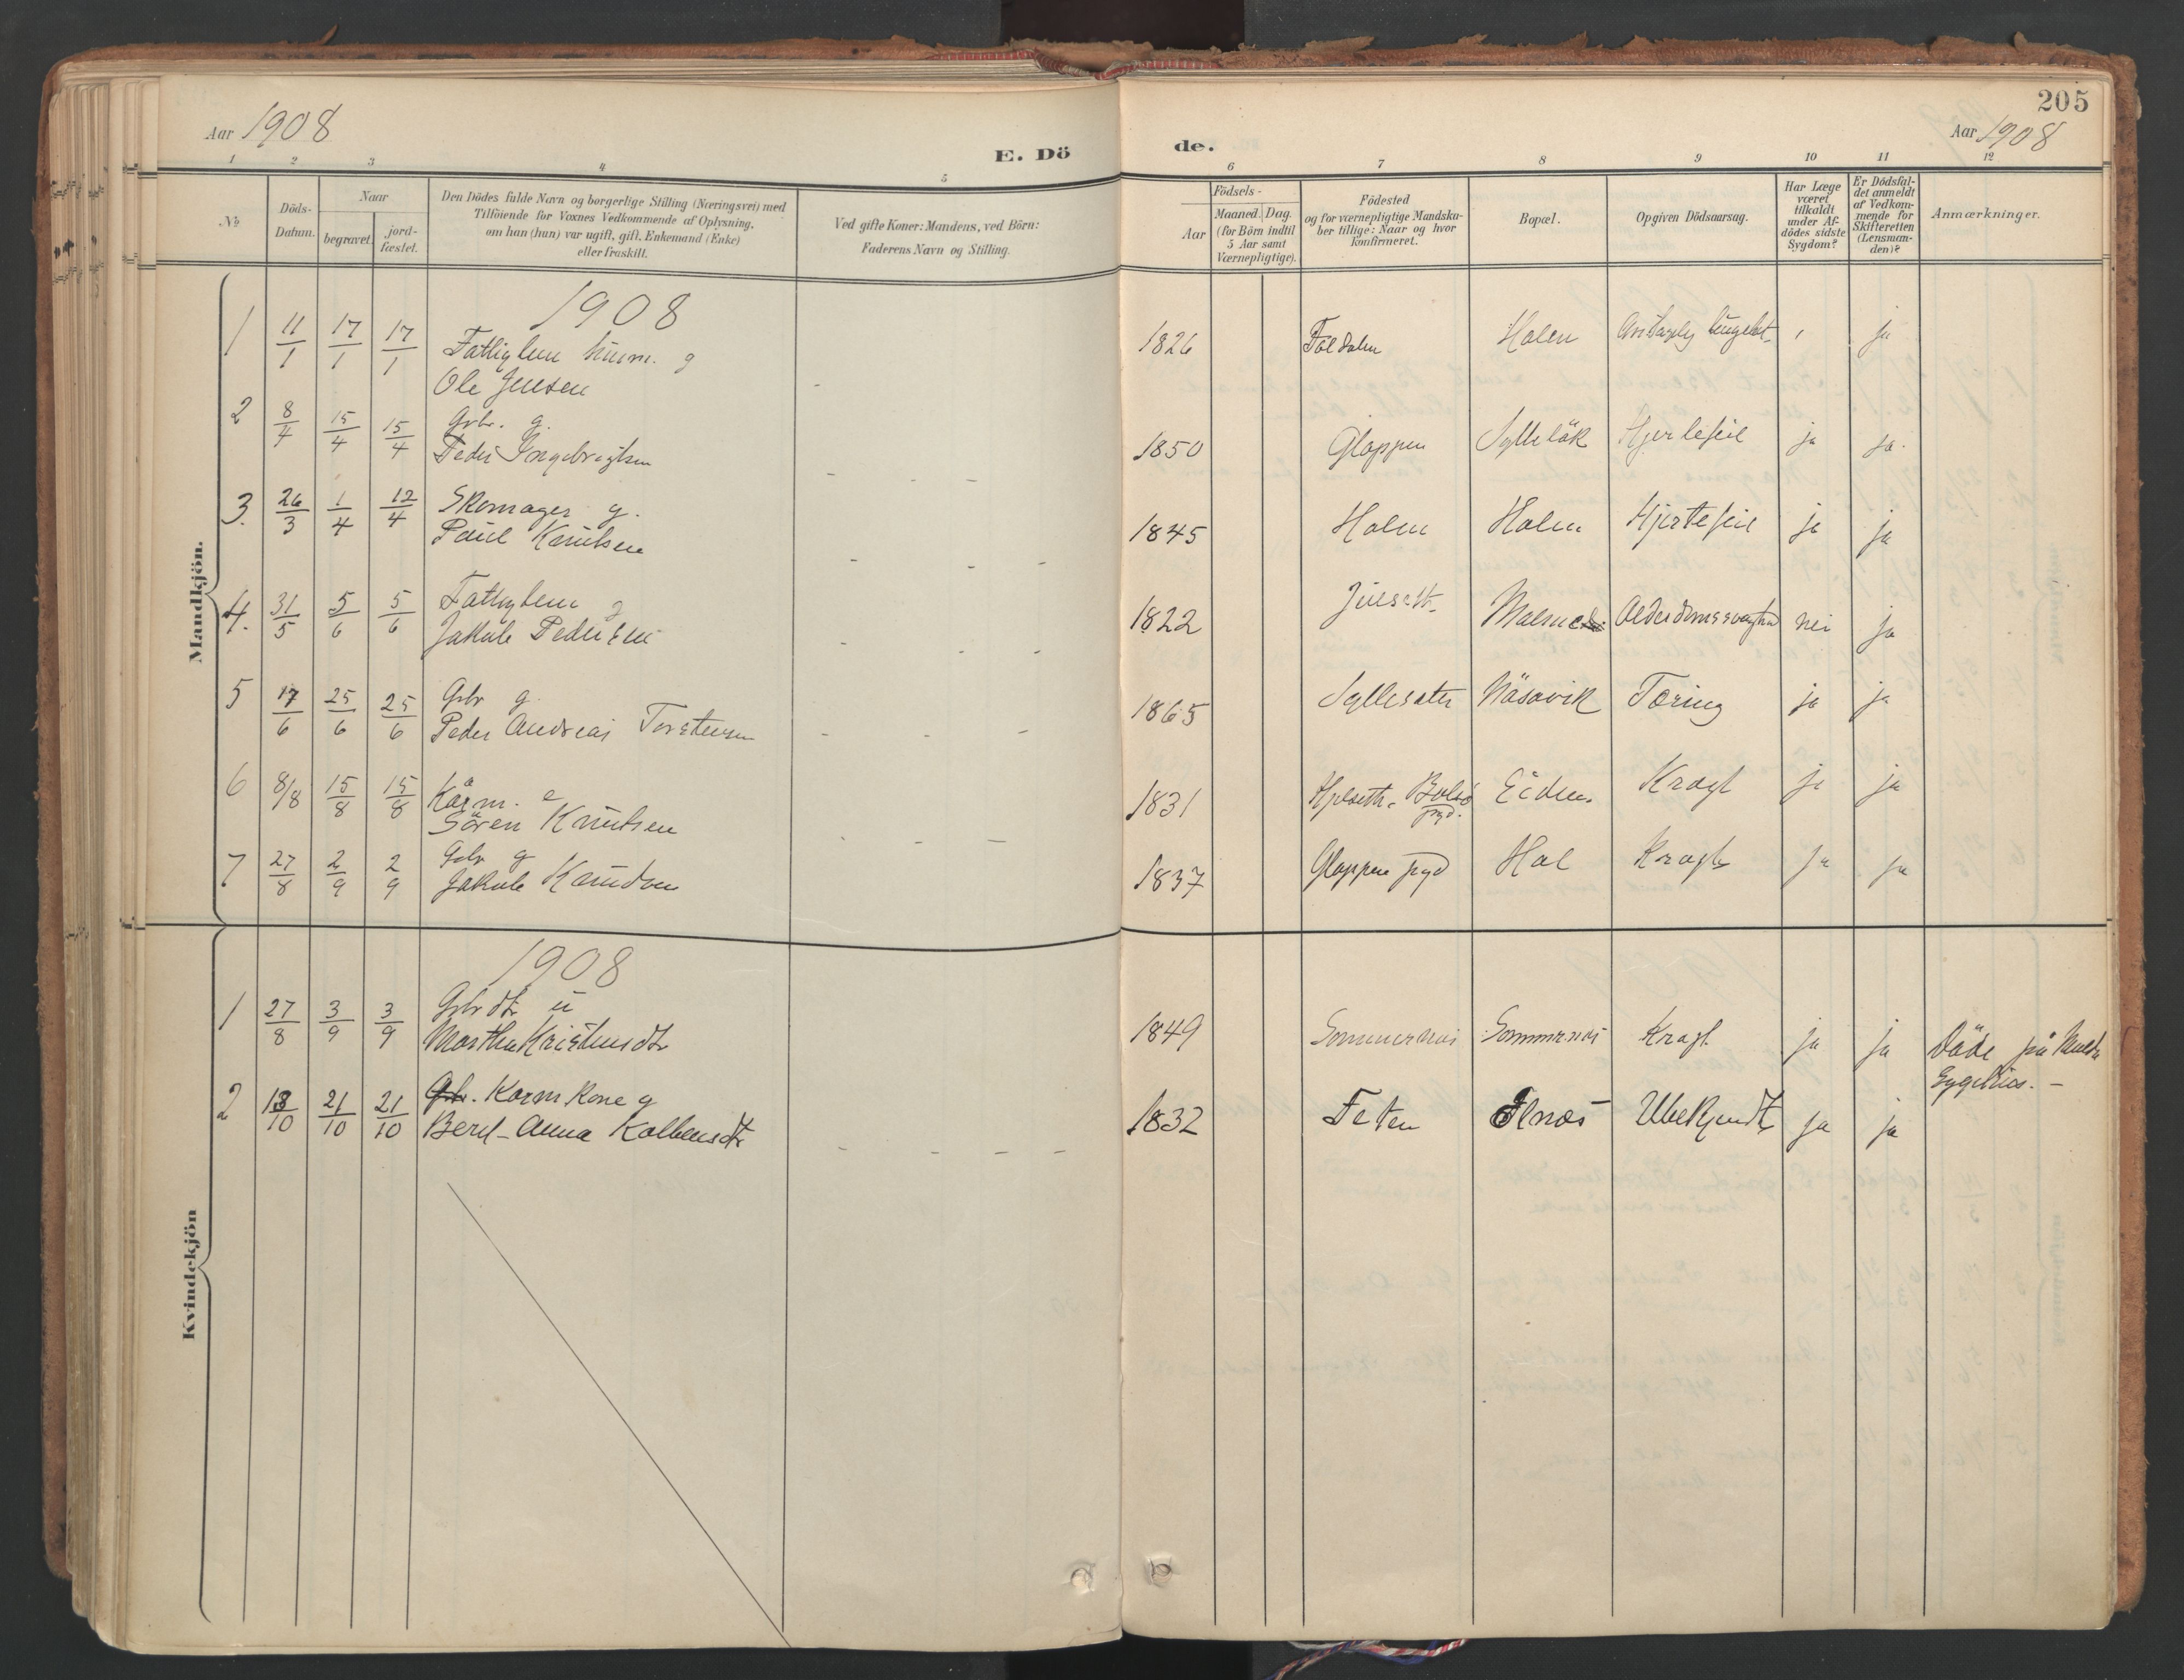 205
Aar 1908
Aar 1908
E. Dö
de.
1 2 3 4 5
6 7 8 9 10 11 12
№
Döds-
Datum.
Naar
begravet.
jord-
fæstet.
Den Dödes fulde Navn og borgerlige Stilling (Næringsvei) med
Tilföiende for Voxnes Vedkommende af Oplysning,
om han (hun) var ugift, gift, Enkemand (Enke)
eller fraskilt.
Ved gifte Koner: Mandens, ved Börn:
Faderens Navn og Stilling.
Födsels-
Aar
Maaned. Dag.
(for Börn indtil
5 Aar samt
Værnepligtige).
Födested
og for værnepligtige Mandska-
ber tillige: Naar og hvor
Konfirmeret.
Bopæl.
Opgiven Dödsaarsag.
Har Læge
været
tilkaldt
under Af-
dödes sidste
Sygdom?
Er Dödsfal-
det anmeldt
af Vedkom-
mende for
Skifteretten
(Lensman-
den)?
Anmærkninger.
Mandkjön.
1908
1 11/1 17/1 17/1 Fattiglem g
Ole Jensen
1826 Holen ja
2 8/4 15/4 15/4 Gbr. g.
Peder Ingebrigtsen
- - -
1850 Gloppen Hjertefeil ja ja.
3. 26/3 1/4 12/4 Skomager g.
Paul Knutsen
- - -
1845 Holm Holm Hjertefeil ja ja
4. 31/5 5/6 5/6 Fattiglem g
Jakob Pedersen
- - -
1822 nei ja
5 17/6 25/6 25/6 Gbr g.
Peder Andreas Torstensen
- - -
1865 Syllesæter Näsavik Tæring ja ja
6 8/8 15/8 15/8 Kårm. e
Sören Knutsen
- - -
1831 Eidem Kræft ja ja
7 27/8 2/9 2/9 Gbr g
Jakob Knudsen
1837 Gloppen pgd Hol Kræft ja ja
Kvindekjön
1908
1 27/8 3/9 3/9 Gbr dtr u
Martha Kristensdtr
1849 Sommernes Sommernes Kræft ja ja Döde på Molde
Sygehus. -
2 13/10 21/10 21/10 Gbr. Kaarm Kone g
Beret-Anna Kolbensdtr
- - - -
1832 Feten Elnæs Ubekjendt ja ja